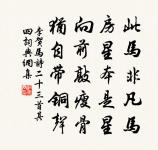 此馬非凡馬
房星本是星
向前敲瘦骨
猶自帶銅聲
李賀馬詩二十三首其
四詞典網集